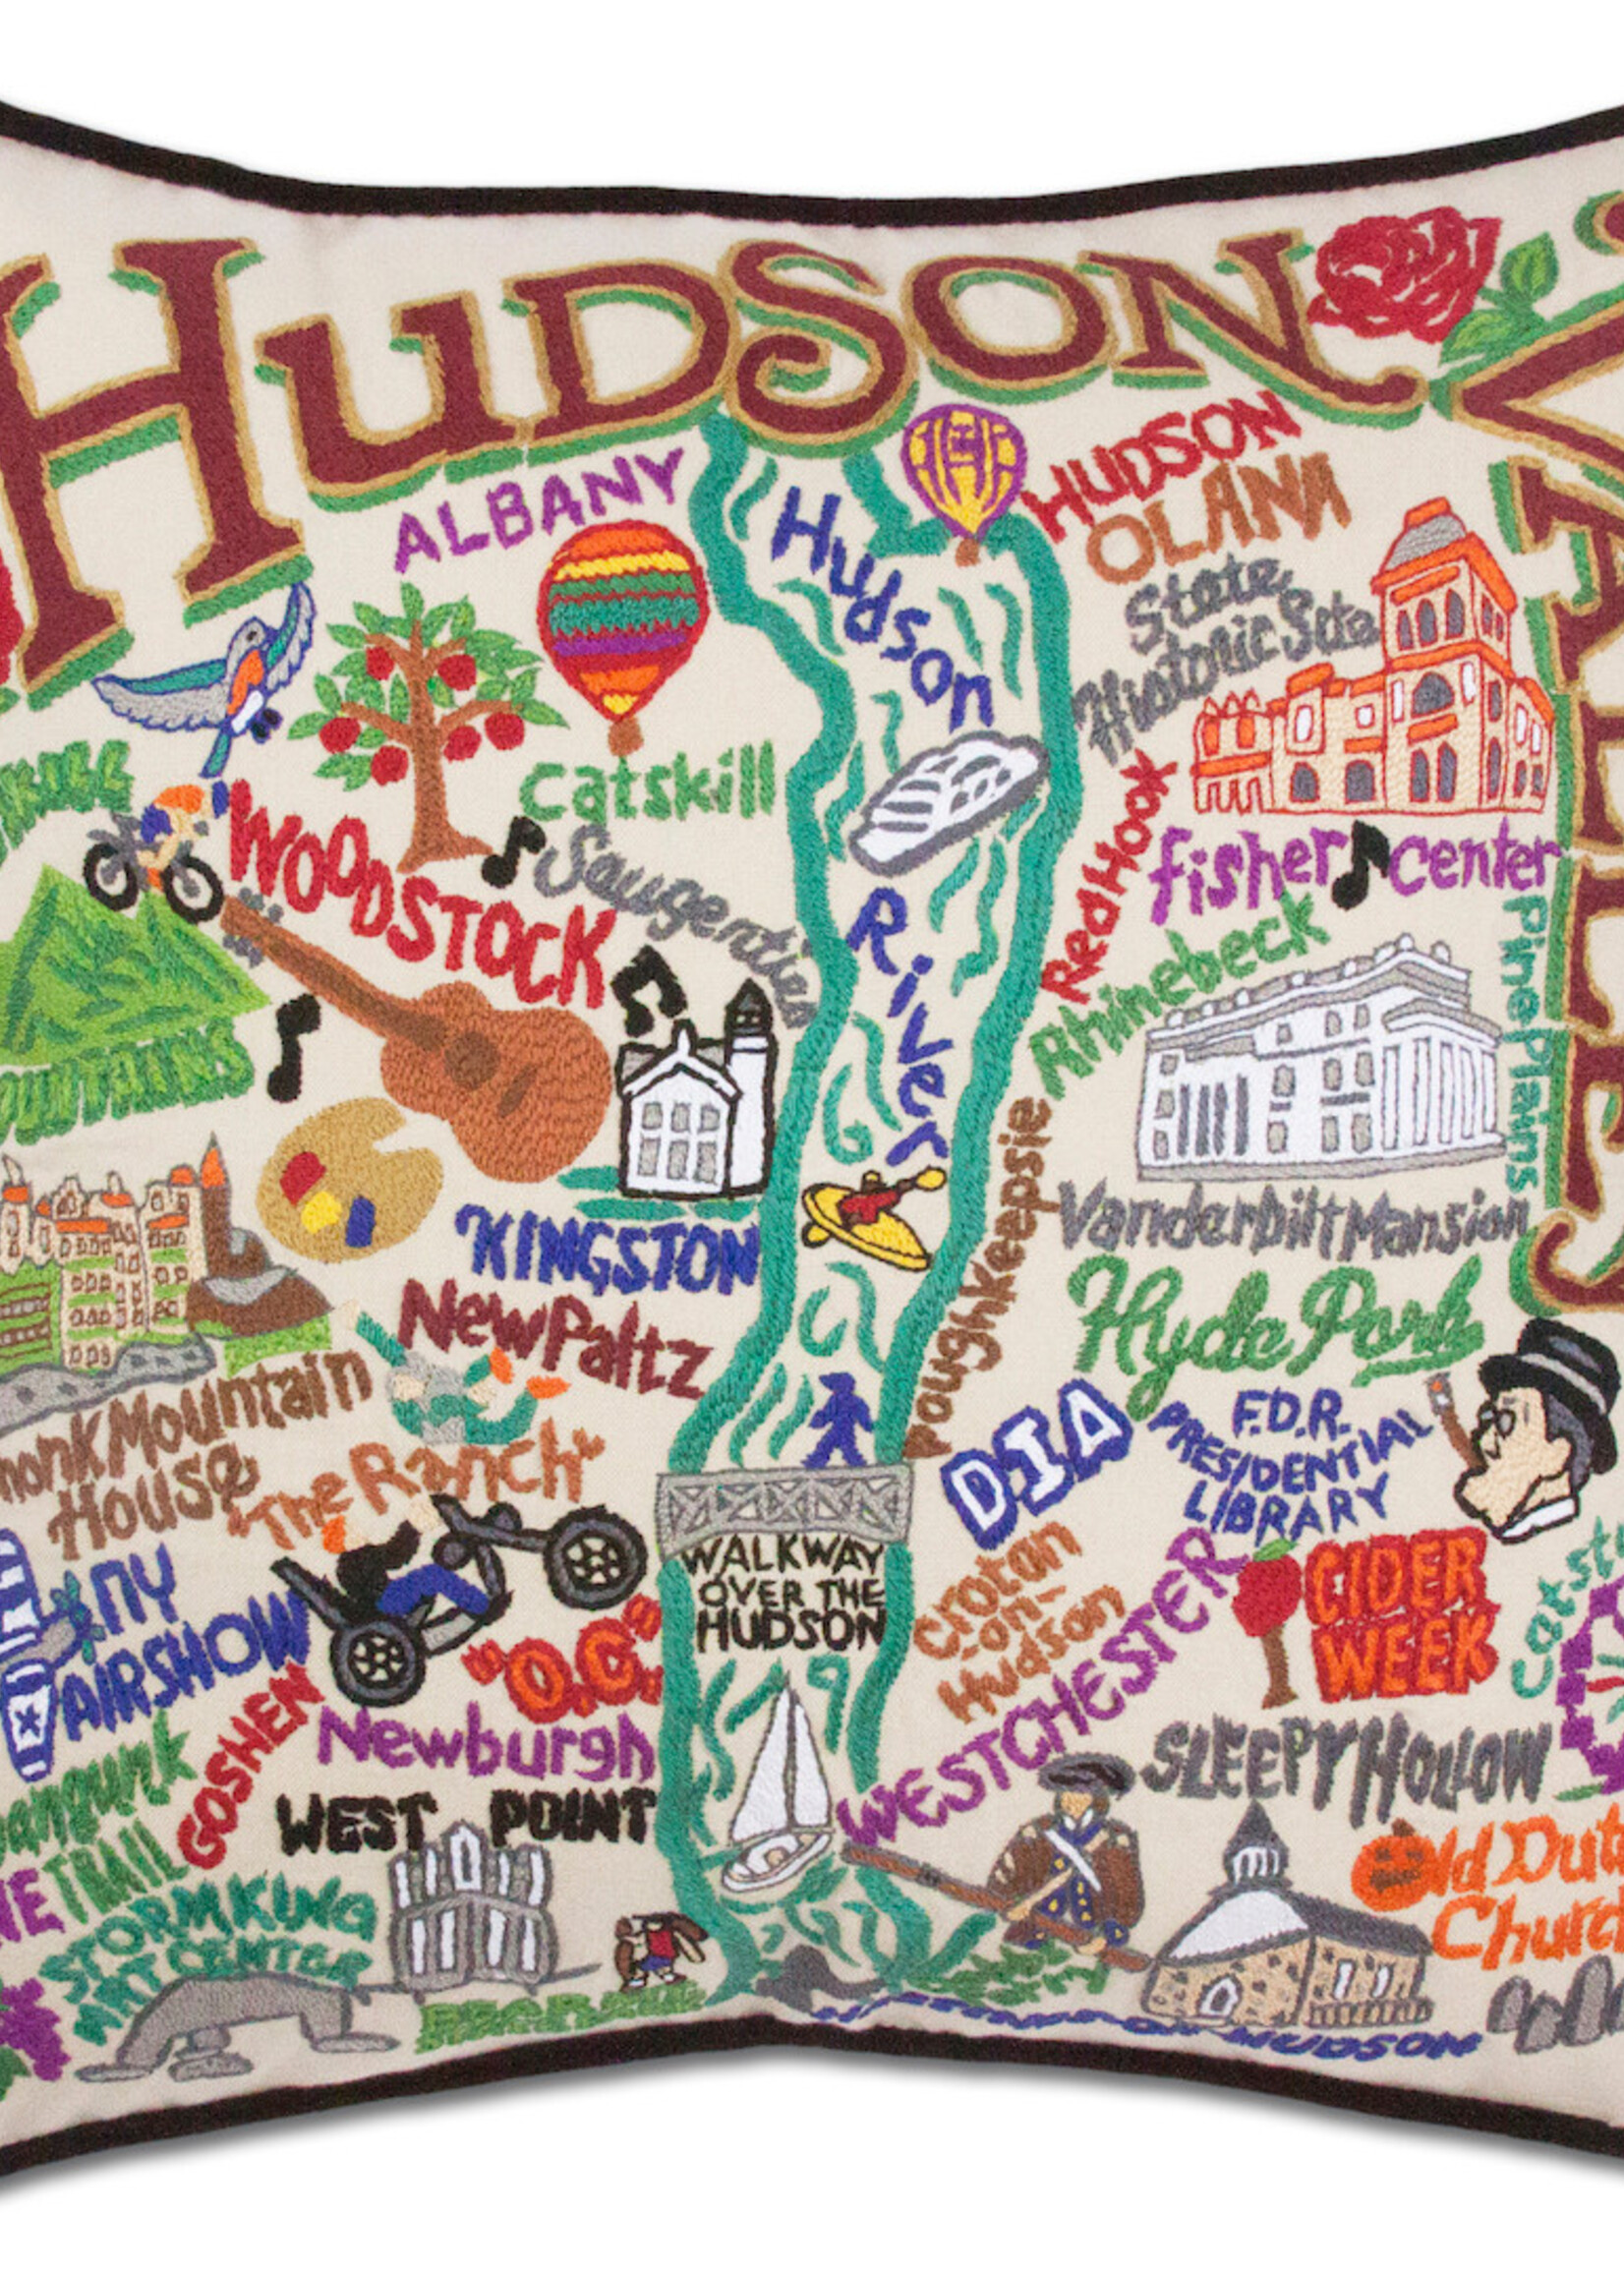 HUDSON
VALLEY
ALBANY
HUDSON
OLANA
State
Historic Site
Hudson
River
Catskill
WOODSTOCK
Saugerties
Red Hook
fisher center
Rhinebeck
Pine Plains
KINGSTON
Poughkeepsie
Vanderbilt Mansion
New Paltz
Hyde Park
Mountain
House
"The Ranch"
DIA
F.D.R.
PRESIDENTIAL
LIBRARY
WALKWAY
OVER THE
HUDSON
Croton
-on-
Hudson
WESTCHESTER
CIDER
WEEK
NY
AIRSHOW
"O.C."
GOSHEN
Newburgh
WEST POINT
SLEEPY HOLLOW
TRAIL
STORM KING
ART CENTER
Old Dut
Churc
HUDSON